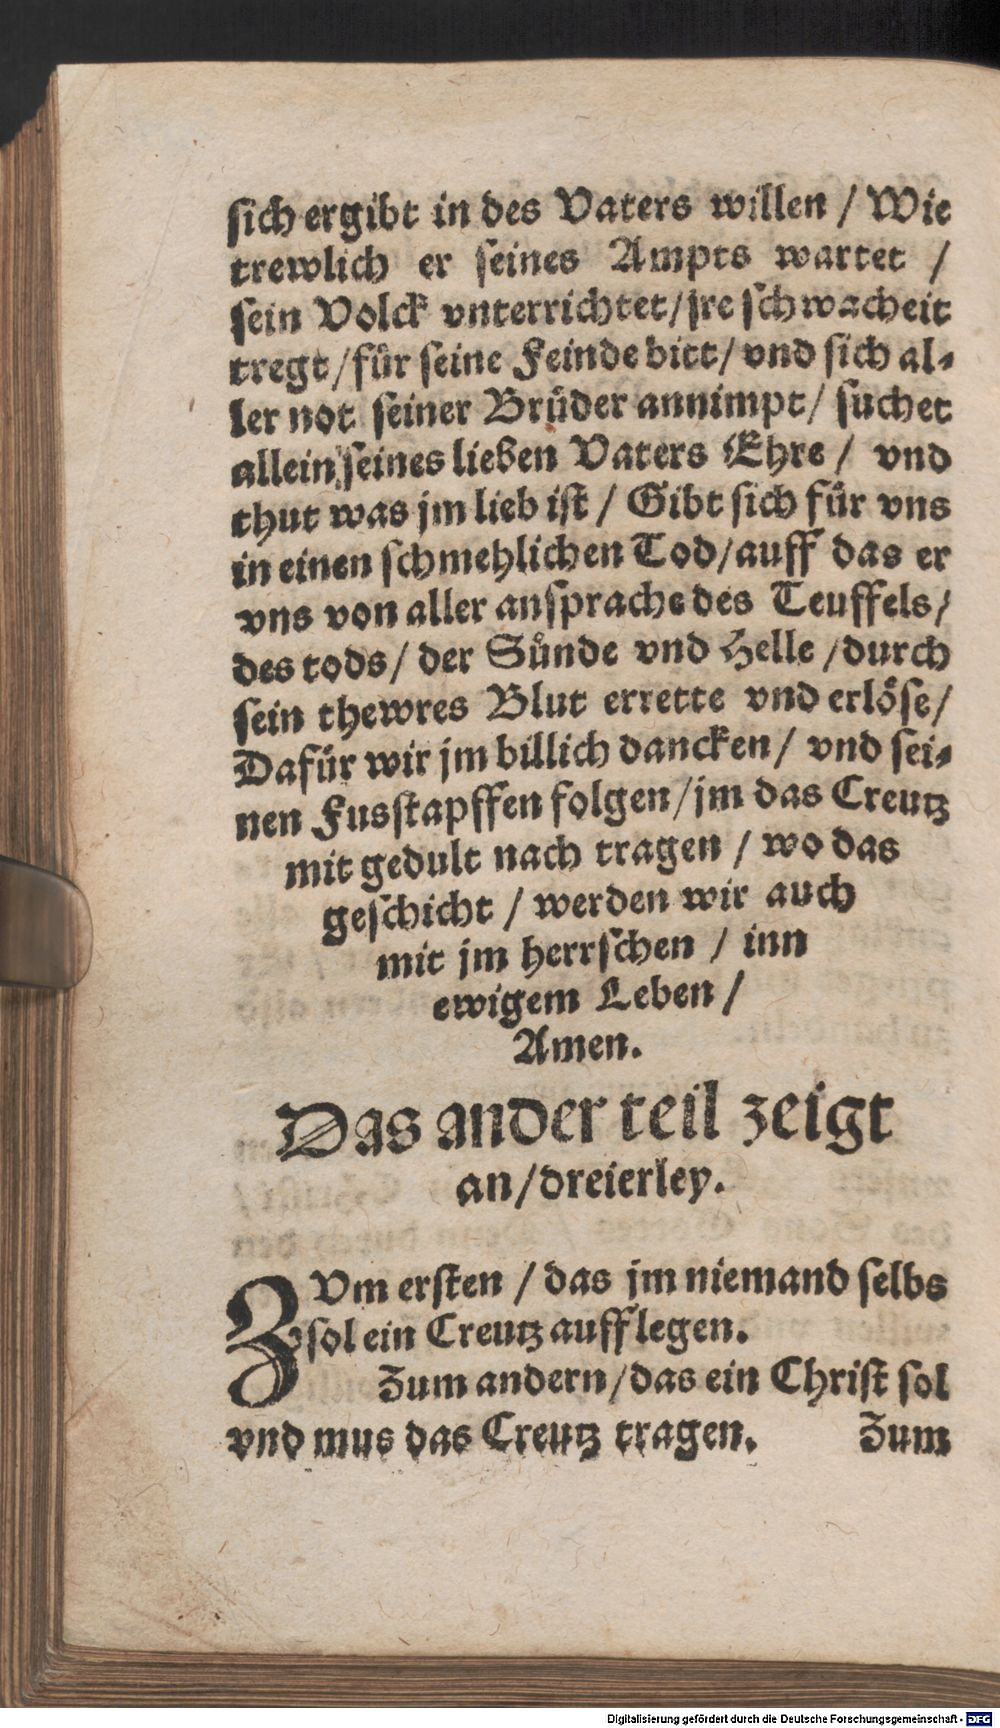 sich ergibt in des Vaters willen / Wie
trewlich er seines Ampts wartet /
sein Volck vnterrichtet/jre schwacheit
tregt/für seine Feinde bitt/ vnd sich al-
ler not seiner Brüder annimpt/ suchet
allein seines lieben Vaters Ehre / vnd
thut was jm lieb ist / Gibt sich für vns
in einen schmehlichen Tod/auff das er
vns von aller ansprache des Teuffels/
des tods/ der Sünde vnd Helle /durch
sein thewres Blut errette vnd erlöse/
Dafür wir jm billich dancken/ vnd sei-
nen Fusstapffen folgen/jm das Creutz
mit gedult nach tragen / wo das
geschicht / werden wir auch
mit jm herrschen / inn
ewigem Leben /
Amen.
Das ander teil zeigt
an/dreierley.
ZVm ersten / das jm niemand selbs
sol ein Creutz aufflegen.
Zum andern/das ein Christ sol
vnd mus das Creutz tragen. Zum
Digitalisierung gefördert durch die Deutsche Forschungsgemeinschaft - DFG